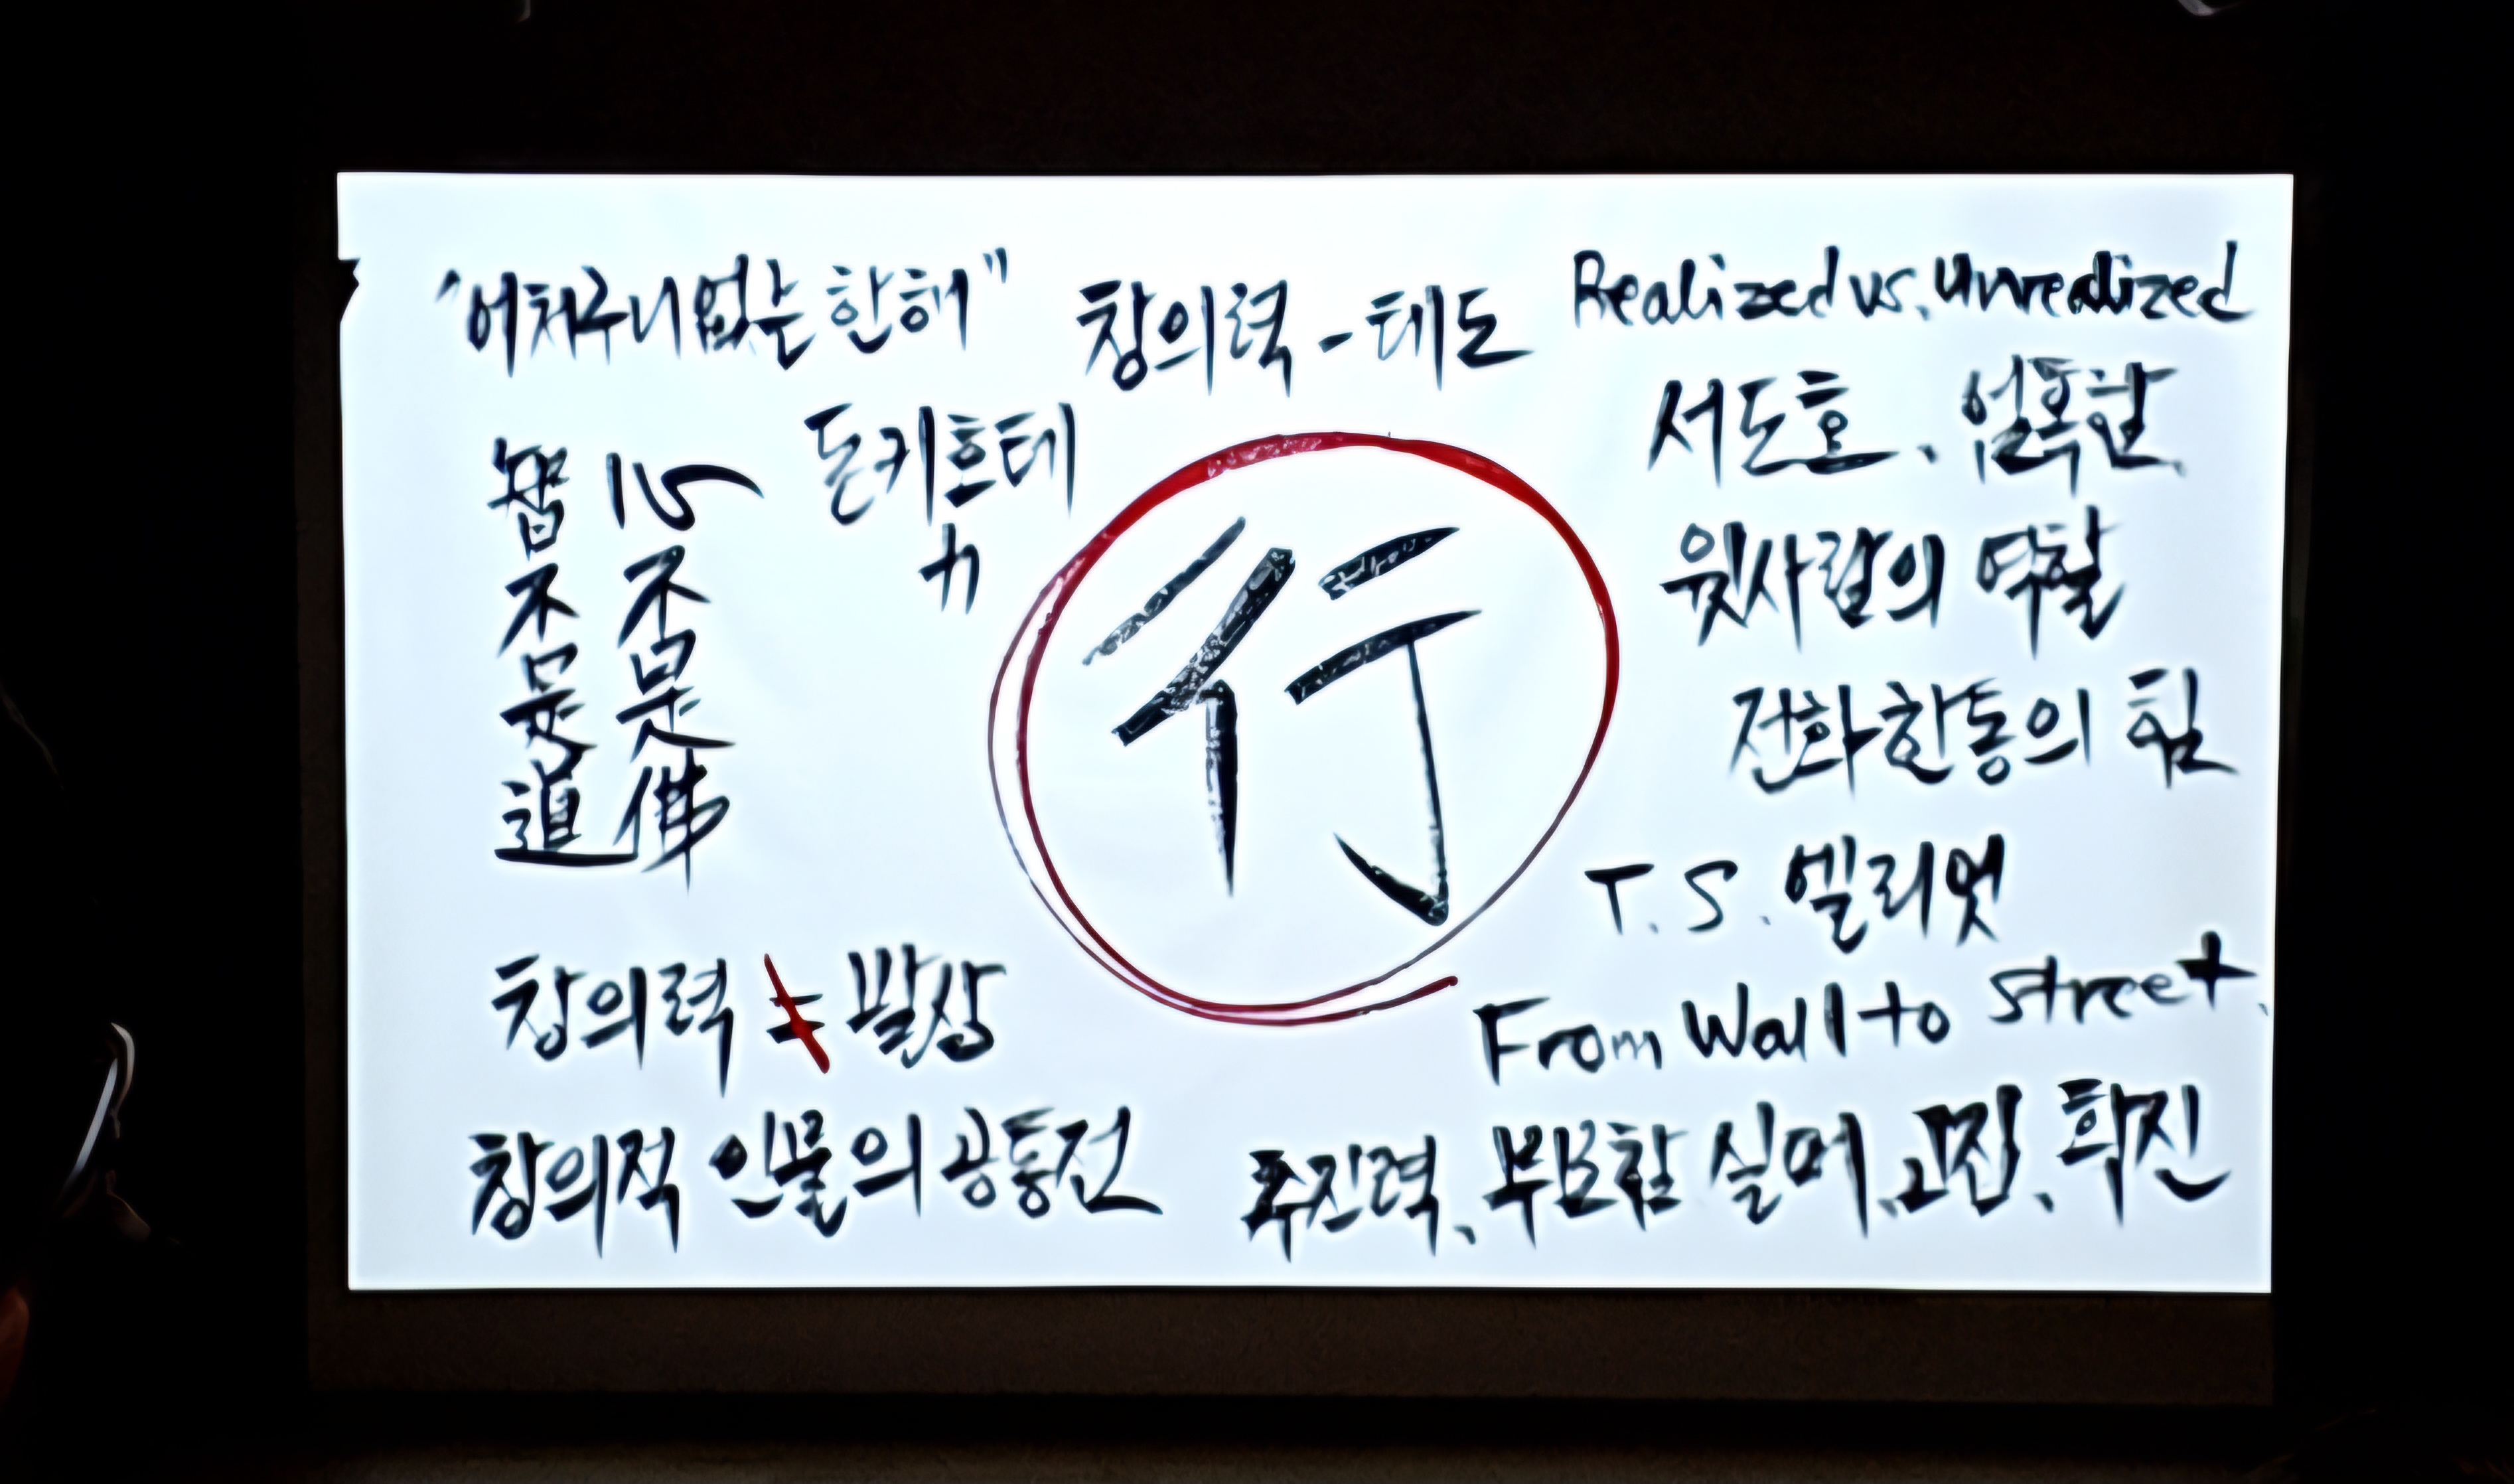 "어처구니없는 한해"
창의력 - 태도
Realized vs. Unrealized
돈키호테
力
心不是佛
智不是道
行
서도호,
윗사람의 역할
전화 한통의 힘
T.S. 엘리엇
From Wall to Street.
창의력 ≠ 발상
창의적 인물의 공통점
추진력, 고집,